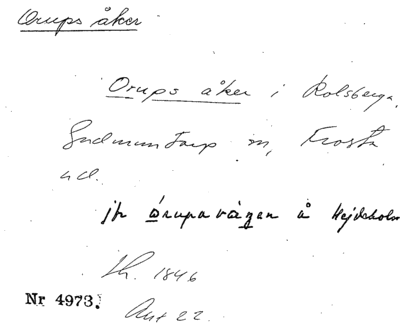 Orups åker
Orups åker i Rolsberga,
Gudmuntorp sn, Frosta
hd.
jfr Orupavägen å Hejdeholm
Th. 1846
Nr 4973.
Ant 22.